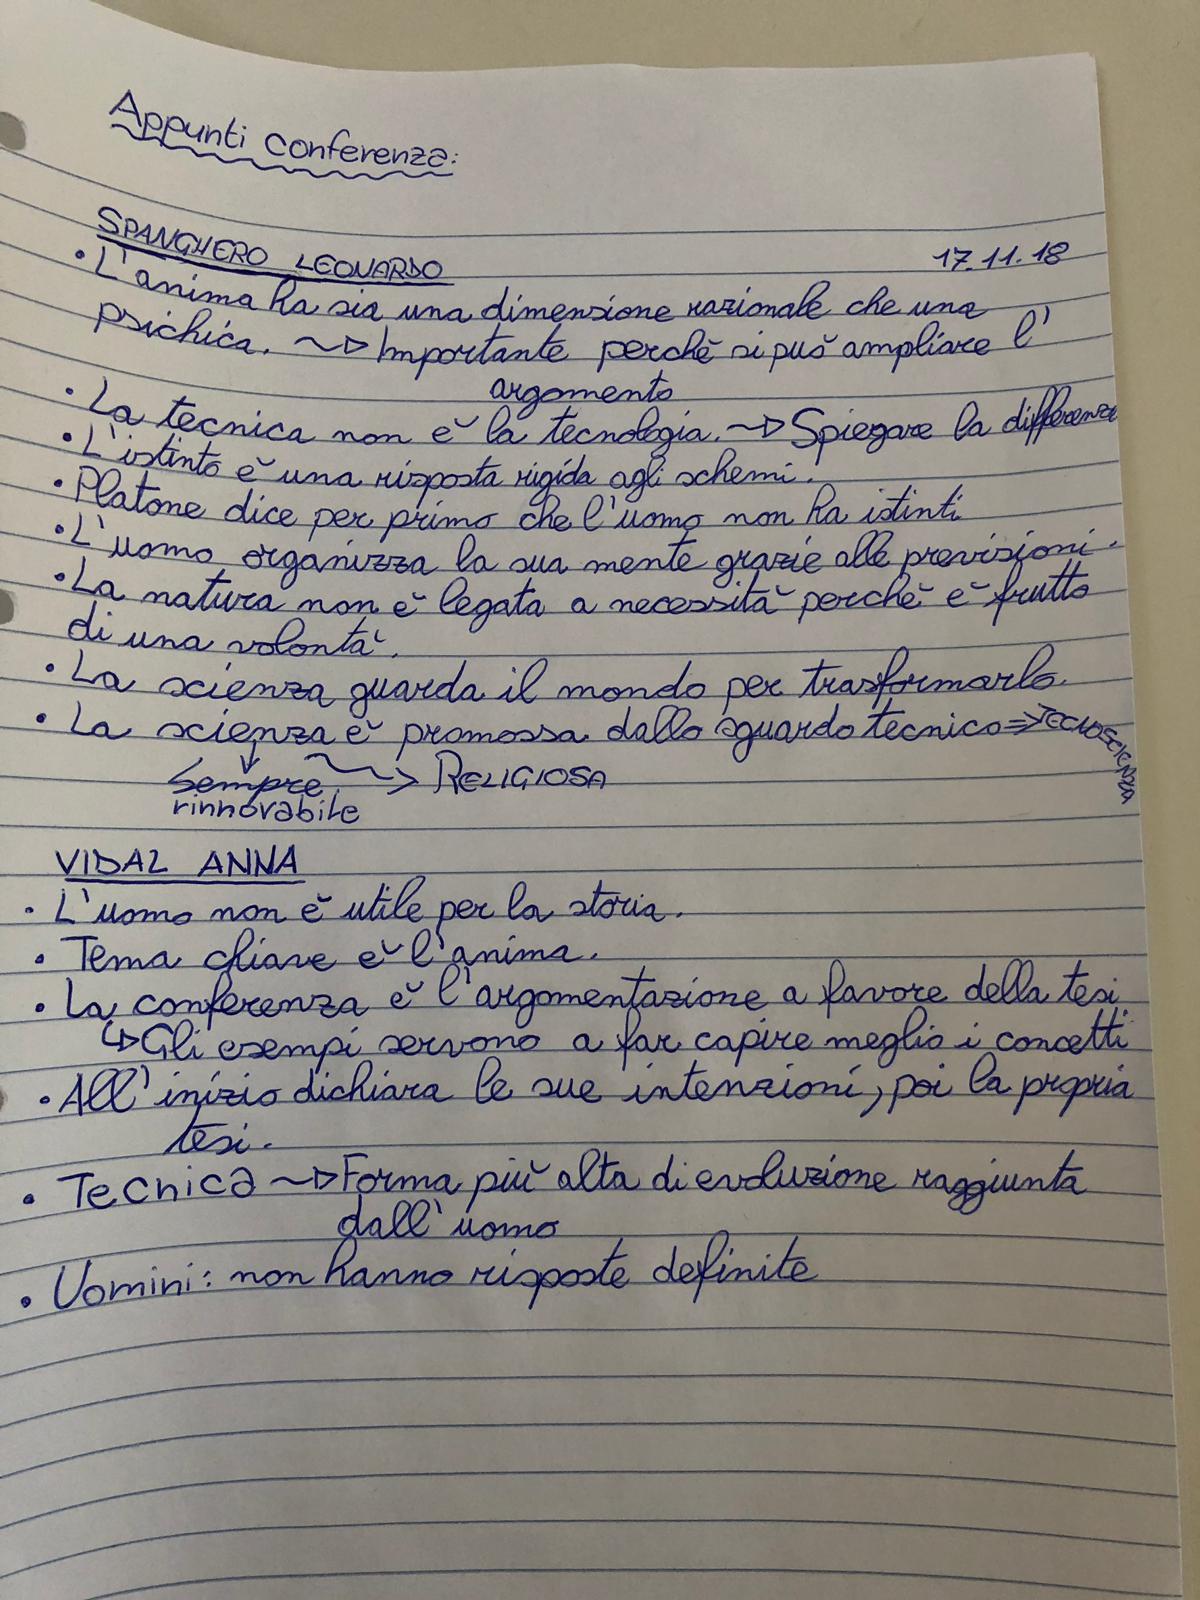 Appunti conferenza:
SPANGHERO LEONARDO
17.11.18
• L'anima ha sia una dimensione razionale che una
psichica. ~> Importante perchè si può ampliare l'
argomento
• La tecnica non è la tecnologia. ~> Spiegare la differenza
• L'istinto è una risposta rigida agli schemi.
• Platone dice per primo che l'uomo non ha istinti
• L'uomo organizza la sua mente grazie alle previsioni.
• La natura non è legata a necessità perchè è frutto
di una volontà.
• La scienza guarda il mondo per trasformarlo.
• La scienza è promossa dallo sguardo tecnico => TECNOSCIENZA
Sempre ~> RELIGIOSA
rinnovabile
VIDAL ANNA
• L'uomo non è utile per la storia.
• Tema chiave è l'anima.
• La conferenza è l'argomentazione a favore della tesi
↳ Gli esempi servono a far capire meglio i concetti
• All'inizio dichiara le sue intenzioni, poi la propria
tesi.
• Tecnica ~> Forma più alta di evoluzione raggiunta
dall'uomo
• Uomini: non hanno risposte definite